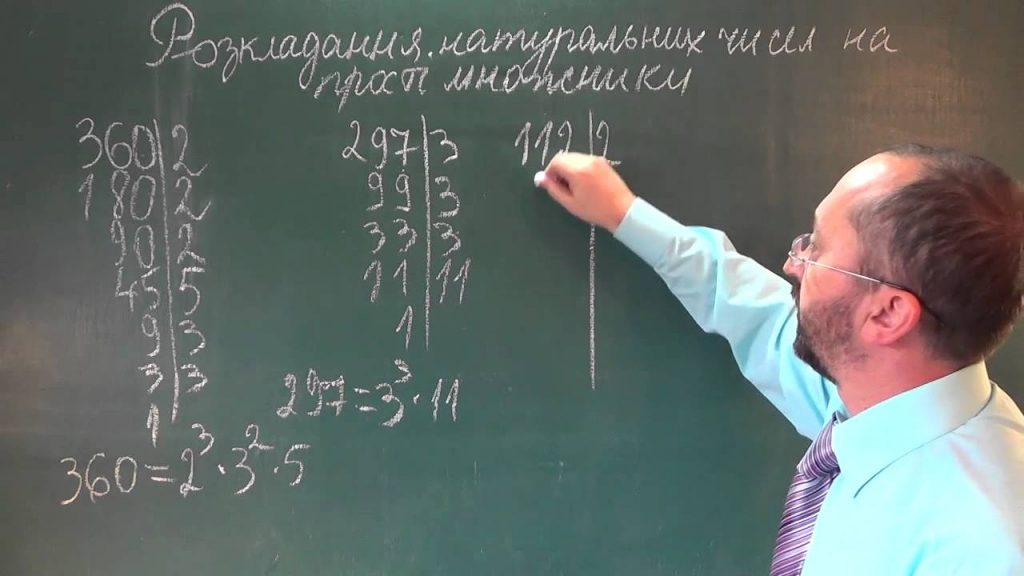 Розкладання натуральних чисел на
прості множники
360|2
180|2
90|2
45|5
9|3
3|3
1
360=2³·3²·5
297|3
99|3
33|3
11|11
1
297=3³·11
112|2